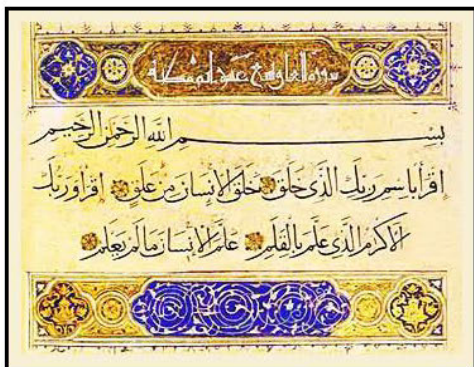 سورة العلق
بِسْمِ اللَّهِ الرَّحْمَنِ الرَّحِيمِ
اقْرَأْ بِاسْمِ رَبِّكَ الَّذِي خَلَقَ خَلَقَ الْإِنْسَانَ مِنْ عَلَقٍ اقْرَأْ وَرَبُّكَ
الْأَكْرَمُ الَّذِي عَلَّمَ بِالْقَلَمِ عَلَّمَ الْإِنْسَانَ مَا لَمْ يَعْلَمْ